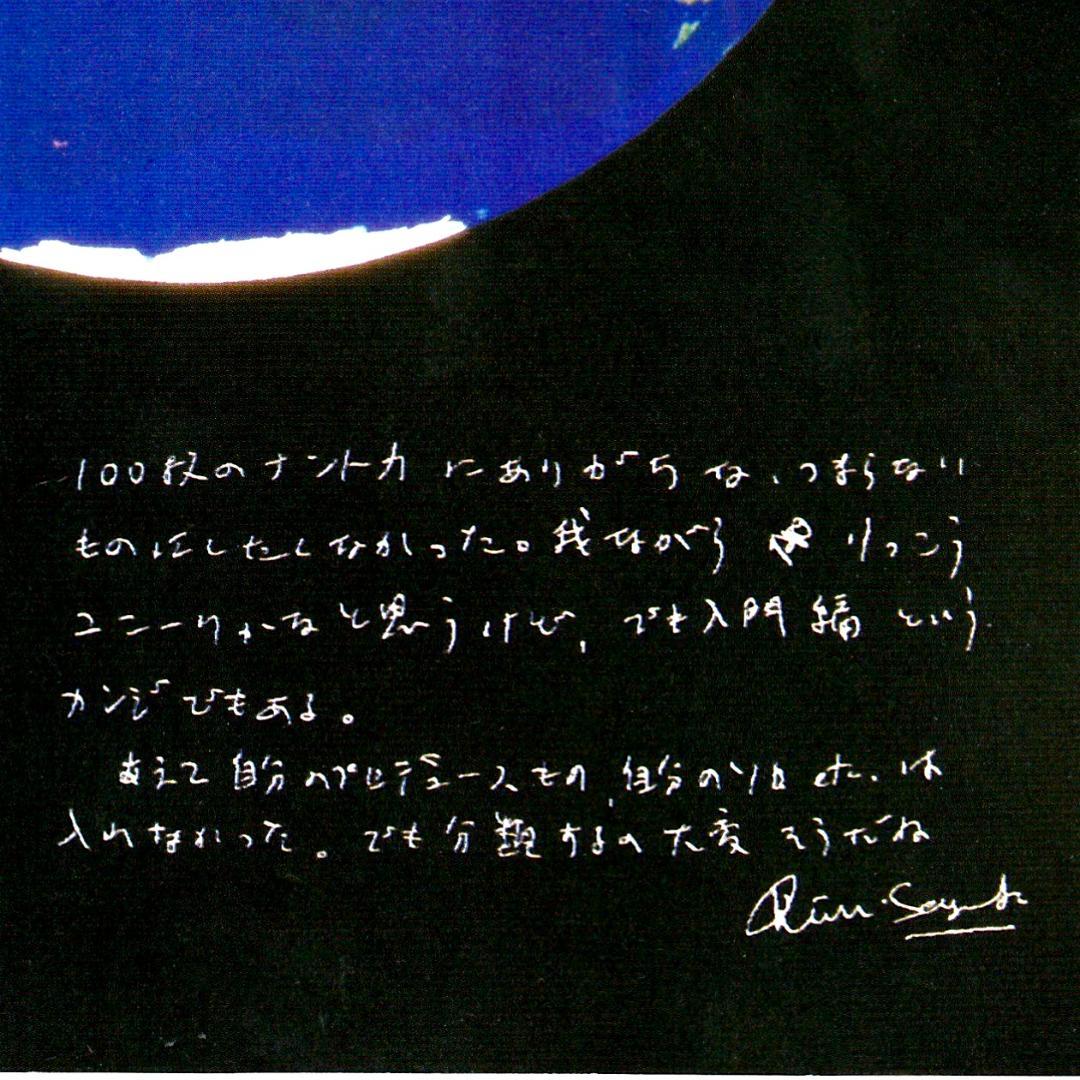 100枚のナントカにありがちな、つまらない
ものにしたくなかった。我ながらけっこう
ユニークかなと思うけど、でも入門編という
カンジでもある。
あえて自分のプロデュースもの、自分のソロ etc. は
入れなかった。でも分類するの大変そうだね